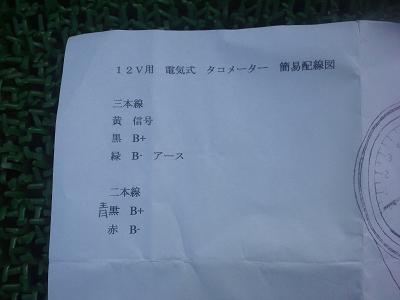 12V用 電気式 タコメーター 簡易配線図
三本線
黄 信号
黒 B+
緑 B- アース
二本線
青黒 B+
赤 B-